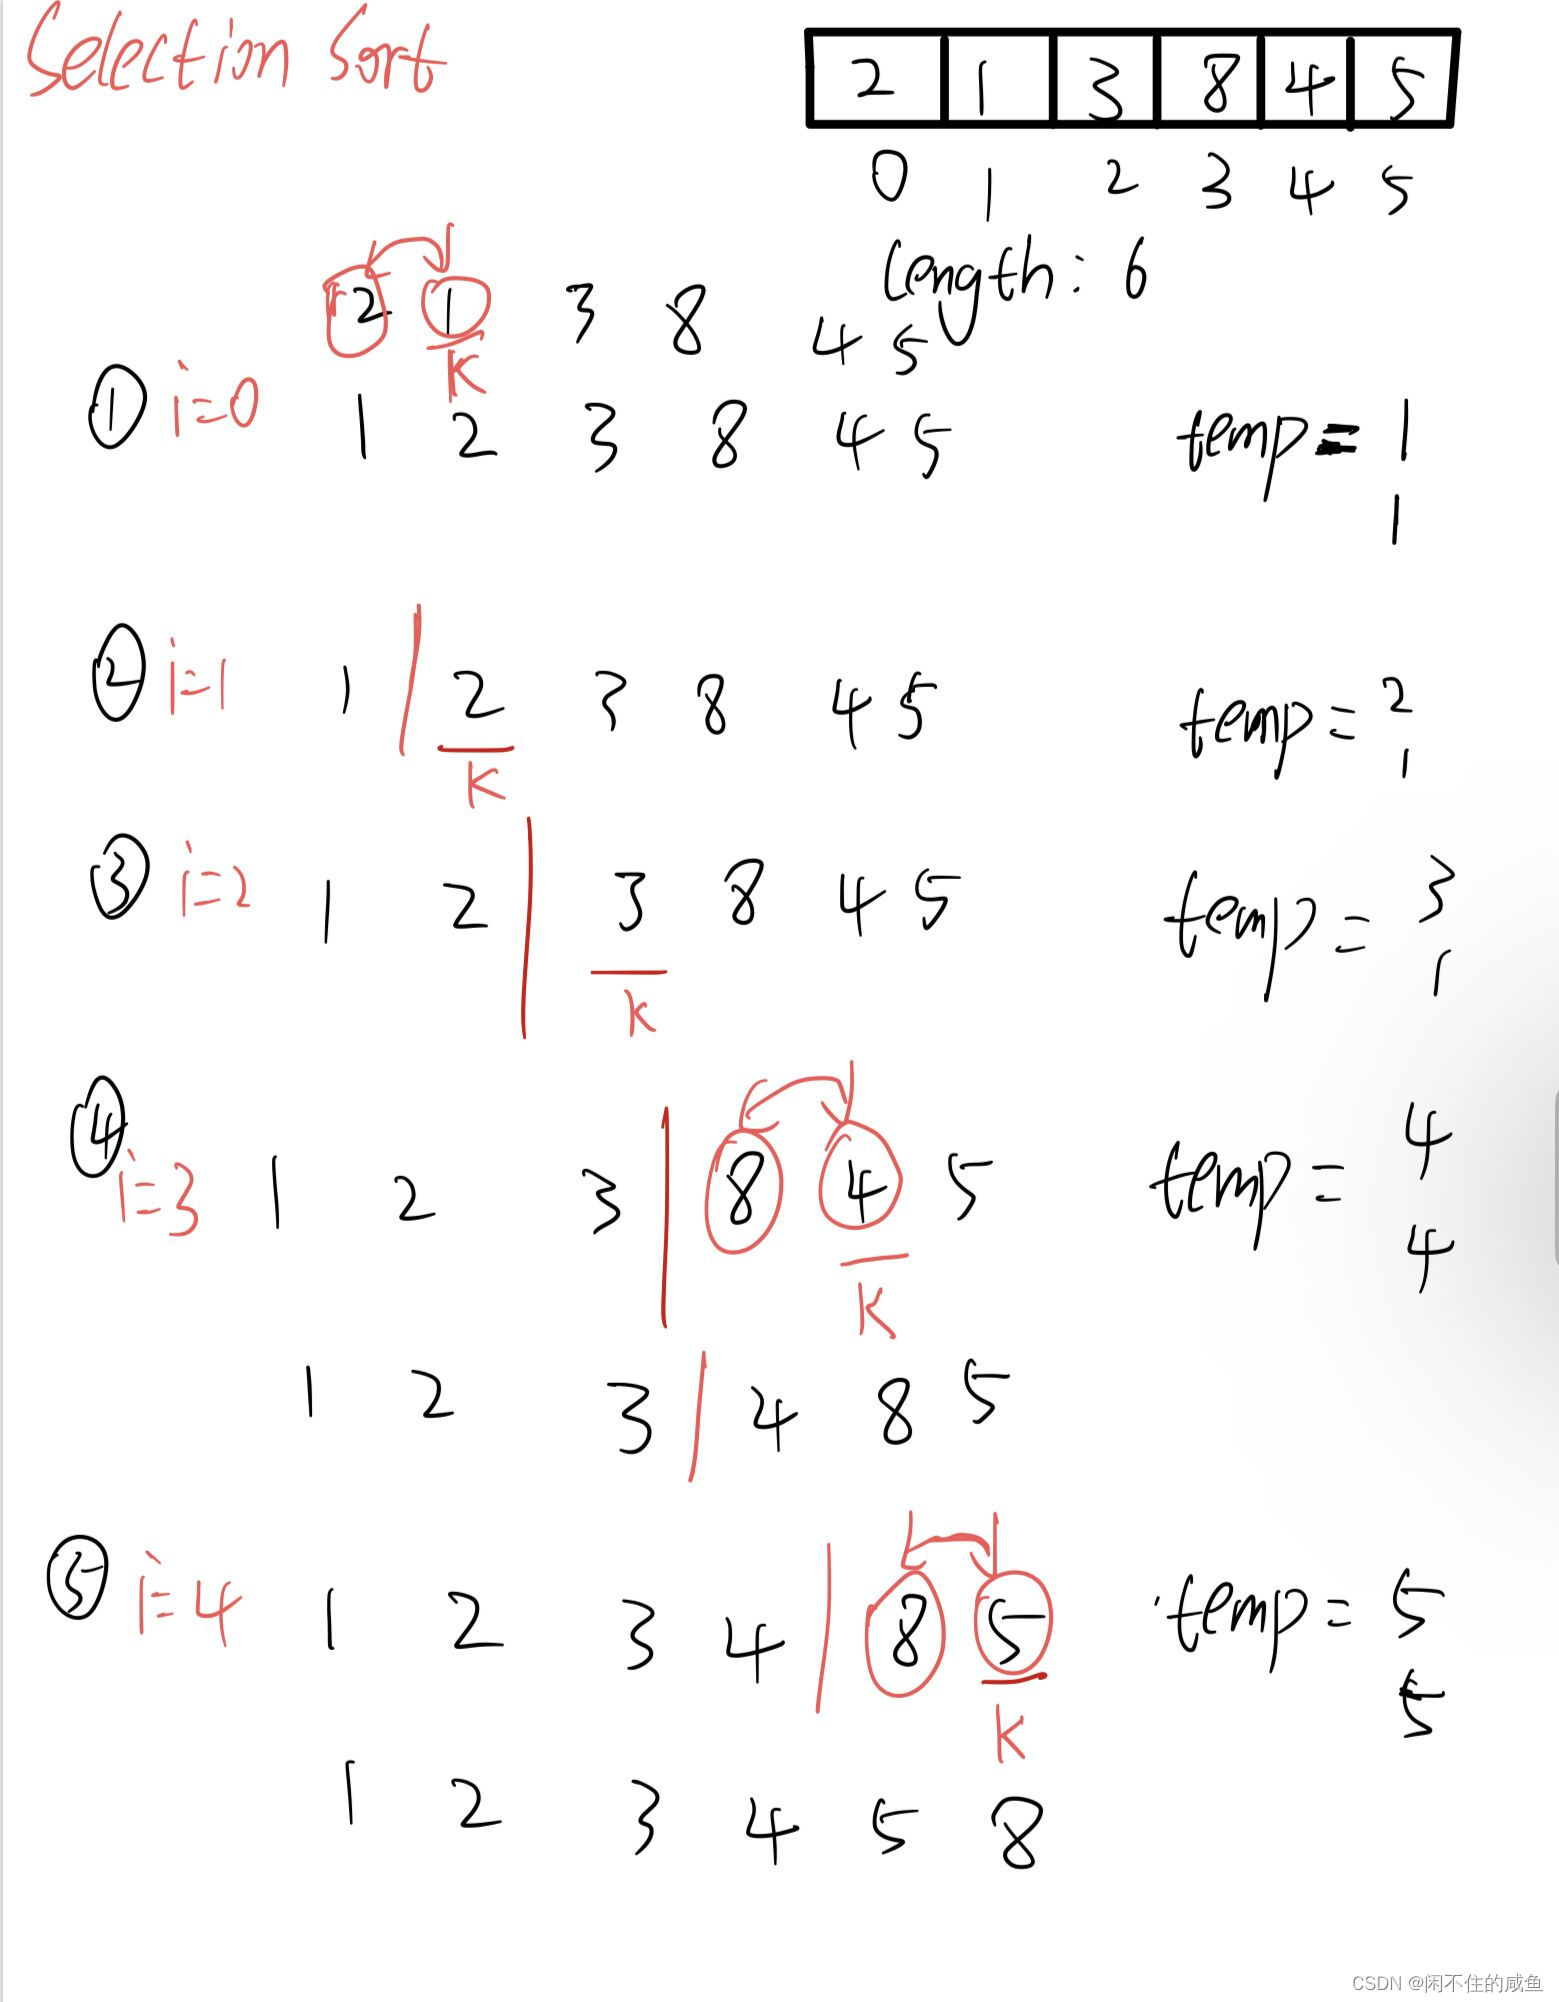 Selection Sort
2 1 3 8 4 5
0 1 2 3 4 5
length: 6
2 1 3 8 4 5
K
① i=0 1 2 3 8 4 5 temp= 1
1
② i=1 1 | 2 3 8 4 5 temp= 2
1
K
③ i=2 1 2 | 3 8 4 5 temp= 3
1
K
④ i=3 1 2 3 | 8 4 5 temp= 4
4
K
1 2 3 | 4 8 5
⑤ i=4 1 2 3 4 | 8 5 temp= 5
5
K
1 2 3 4 5 8
CSDN @闲不住的咸鱼